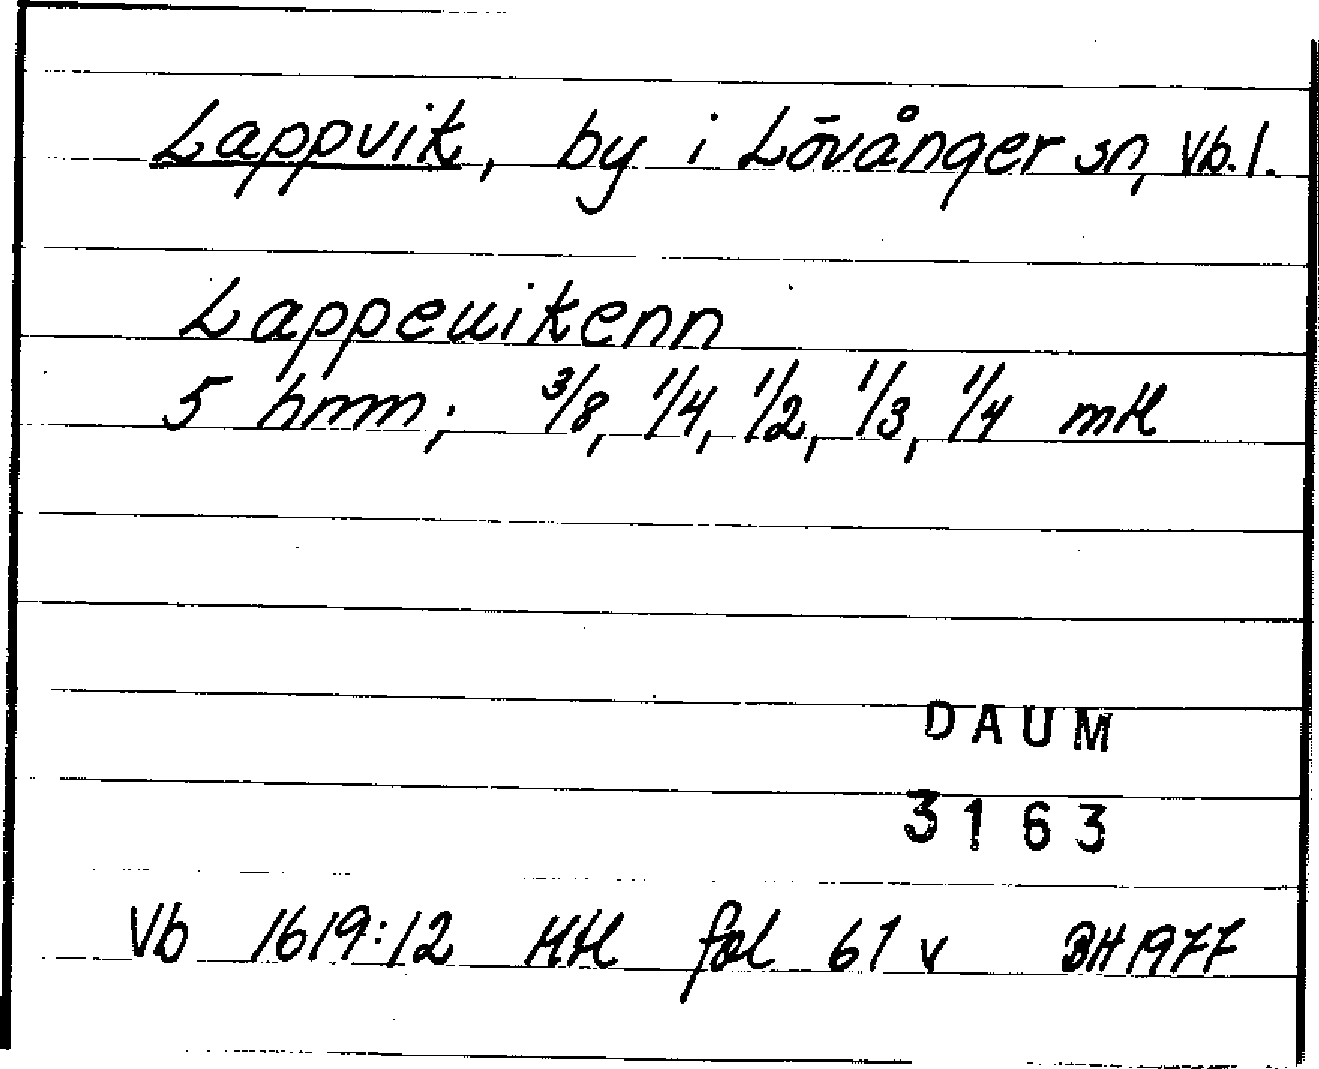 Lappvik, by i Lövånger sn, Vb. l.
Lappeuikenn
5 hmm; 3/8, 1/4, 1/2, 1/3, 1/4 mtl
DAUM
3163
Vb 1619:12 HH fol 61 v BH 1977